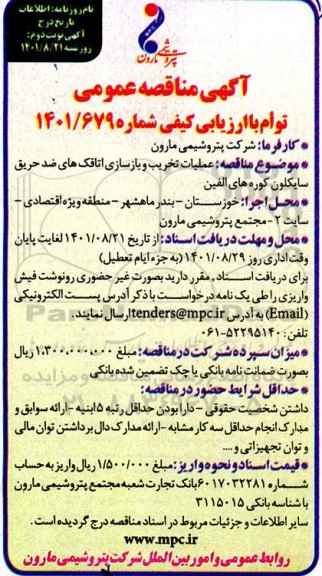 نام روزنامه: اطلاعات
تاریخ درج
آگهی نوبت دوم:
روز شنبه ۱۴۰۱/۸/۲۱
پتروشیمی مارون
آگهی مناقصه عمومی
توام با ارزیابی کیفی شماره ۱۴۰۱/۶۷۹
* کارفرما: شرکت پتروشیمی مارون
* موضوع مناقصه: عملیات تخریب و بازسازی اتاقک های ضد حریق
سایکلون کوره های الفین
* محل اجرا: خوزستان - بندر ماهشهر - منطقه ویژه اقتصادی -
سایت ۲ - مجتمع پتروشیمی مارون
* محل و مهلت دریافت اسناد: از تاریخ ۱۴۰۱/۰۸/۲۱ لغایت پایان
وقت اداری روز ۱۴۰۱/۰۸/۲۹ (به جزء ایام تعطیل)
برای دریافت اسناد، مقرر دارید بصورت غیر حضوری رونوشت فیش
واریزی را طی یک نامه درخواست با ذکر آدرس پست الکترونیکی
(Email) به آدرس tenders@mpc.ir ارسال نمایند.
تلفن: ۵۲۲۹۵۱۴۰-۰۶۱
* میزان سپرده شرکت در مناقصه: مبلغ ۱.۳۰۰.۰۰۰.۰۰۰ ریال
بصورت ضمانت نامه بانکی یا چک تضمین شده بانکی
* حداقل شرایط حضور در مناقصه:
داشتن شخصیت حقوقی - دارا بودن حداقل رتبه ۵ ابنیه - ارائه سوابق و
مدارک انجام حداقل سه کار مشابه - ارائه مدارک دال بر داشتن توان مالی
و توان تجهیزاتی و ....
* قیمت اسناد و نحوه واریز: مبلغ ۱/۵۰۰/۰۰۰ ریال واریز به حساب
شماره ۶۰۱۷۰۳۲۲۸۱ بانک تجارت شعبه مجتمع پتروشیمی مارون
با شناسه بانکی ۳۱۱۵۰۱۵
سایر اطلاعات و جزئیات مربوط در اسناد مناقصه درج گردیده است.
www.mpc.ir
روابط عمومی و امور بین الملل شرکت پتروشیمی مارون